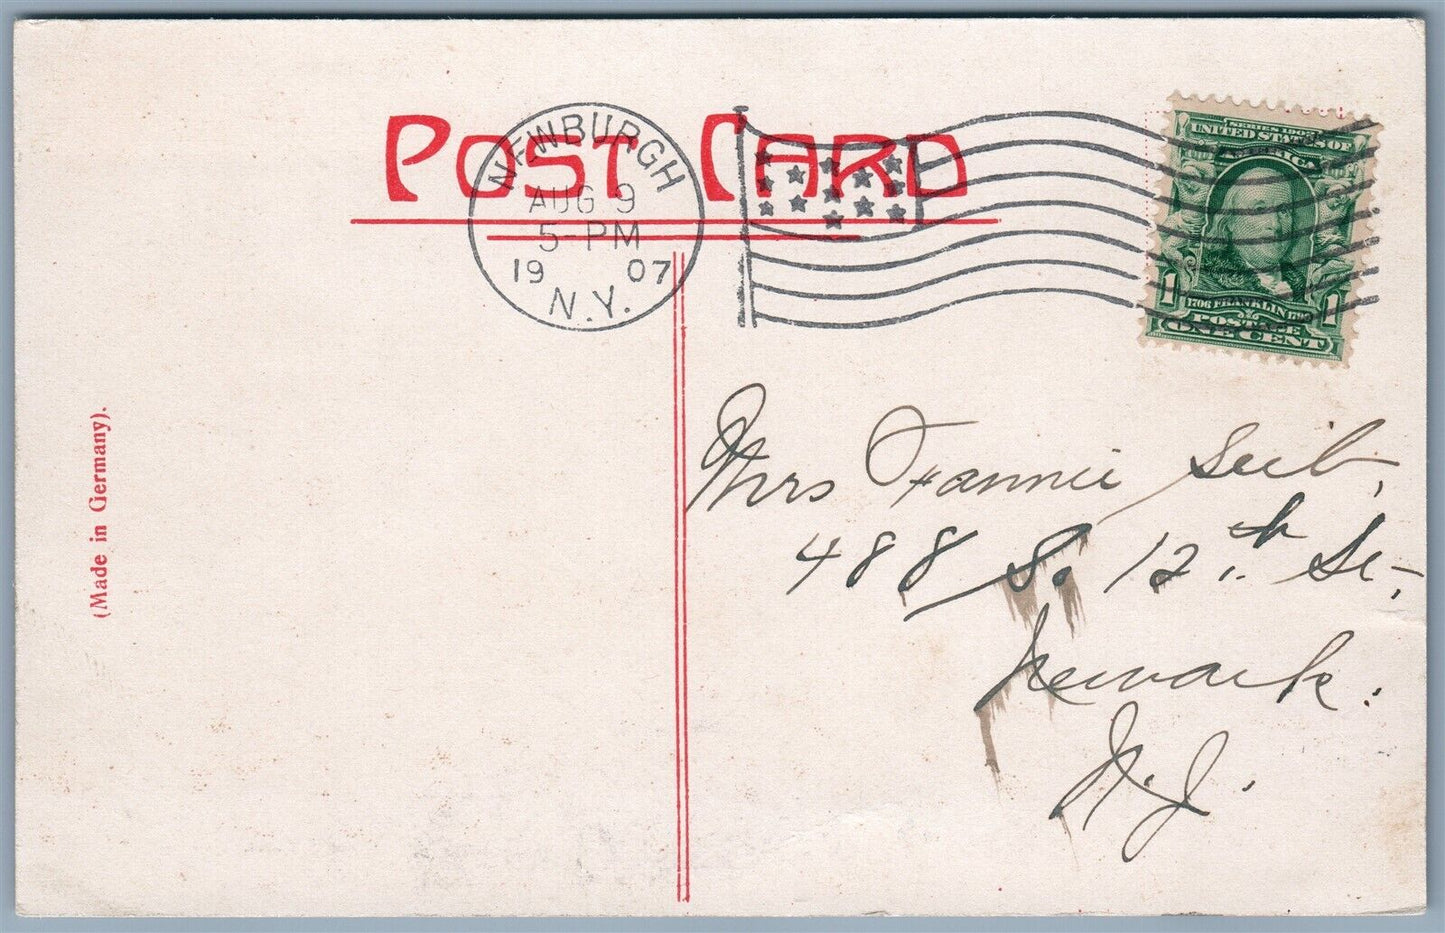 POST CARD
NEWBURGH
AUG 9
5-PM
1907
N.Y.
SERIES 1902
UNITED STATES OF
AMERICA
1 1706 FRANKLIN 1790 1
POSTAGE
ONE CENT
(Made in Germany).
Mrs Fannie Seib,
488 S. 12th St.,
Newark.
N.J.